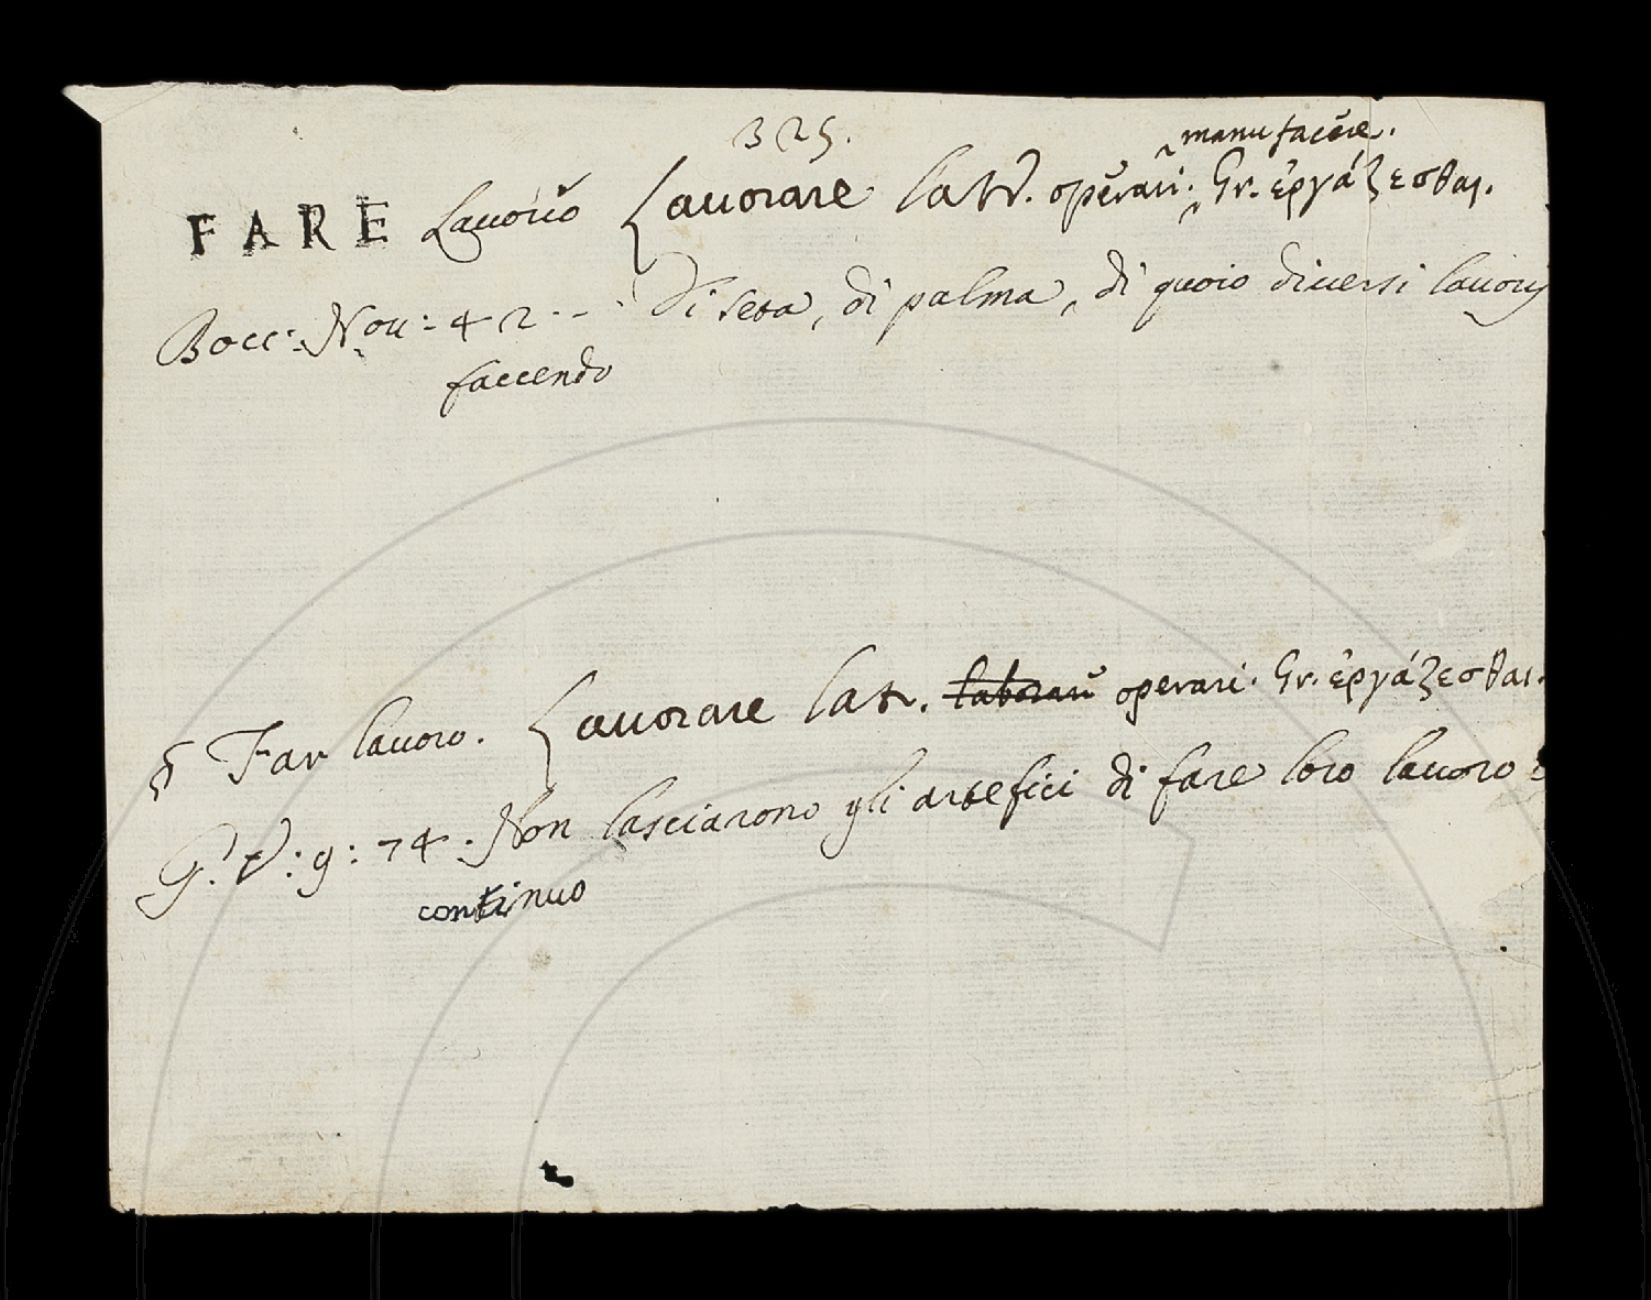 325.
manu facere.
FARE Lauorio Lauorare latt. operari. Gr. ἐργάζεσθαι.
Bocc: Nou: 42 -- Di seta, di palma, di quoio diuersi lauorij
faccendo
§ Far lauoro. Lauorare lat. laborare operari. Gr. ἐργάζεσθαι.
G. V: 9: 74. Non lasciarono gli artefici di fare loro lauoro
continuo